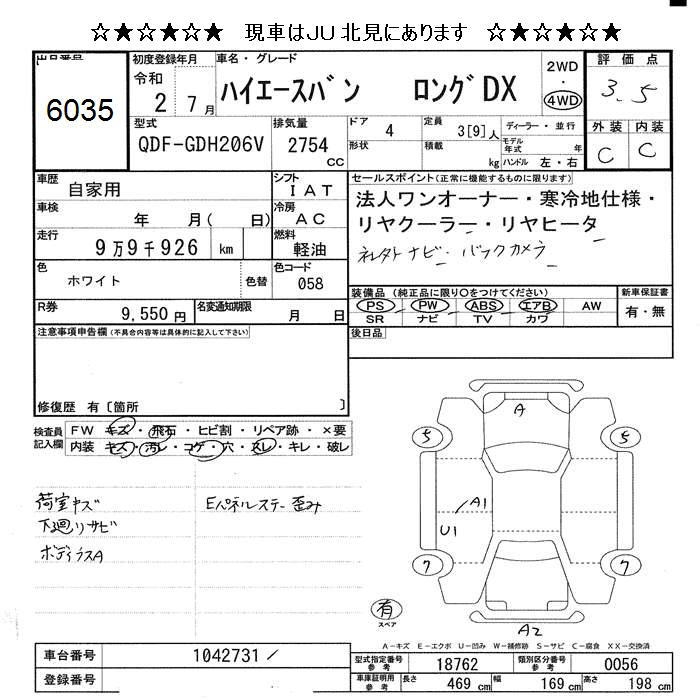 ☆★☆★☆★ 現車はJU北見にあります ☆★☆★☆★
出品番号
6035
初度登録年月
令和
2 7月
車名・グレード
ハイエースバン ロングDX
2WD
・
4WD
評価点
3.5
外装 内装
C C
型式
QDF-GDH206V
排気量
2754
cc
ドア
4
形状
定員
3[9]人
積載
kg
ディーラー・並行
モデル年式 年
ハンドル 左・右
車歴
自家用
シフト
IAT
車検
年 月( 日)
冷房
AC
走行
9万9千926 km
燃料
軽油
色
ホワイト
色替
色コード
058
R券
9,550円
名変通知期限
月 日
セールスポイント(正常に機能するものに限ります)
法人ワンオーナー・寒冷地仕様・
リヤクーラー・リヤヒータ
社外ナビ・バックカメラ
装備品(純正品に限り○をつけてください)
PS PW ABS エアB AW
SR ナビ TV カワ
新車保証書
有・無
後日品
注意事項申告欄(不具合内容等は具体的に記入して下さい)
修復歴 有〔箇所 〕
検査員
記入欄
FW キズ・飛石・ヒビ割・リペア跡・×要
内装 キズ・汚レ・コゲ・穴・スレ・キレ・破レ
荷室キズ
下廻りサビ
ボディラスA
Eパネルステー歪み
A
5
5
A1
U1
7
7
有
スペア
A2
A-キズ E-エクボ U-凹み W-補修跡 S-サビ C-腐食 XX-交換済
車台番号
1042731/
登録番号
型式指定番号
参考
18762
類別区分番号
参考
0056
車庫証明用
参考
長さ 469cm
幅 169cm
高さ 198cm